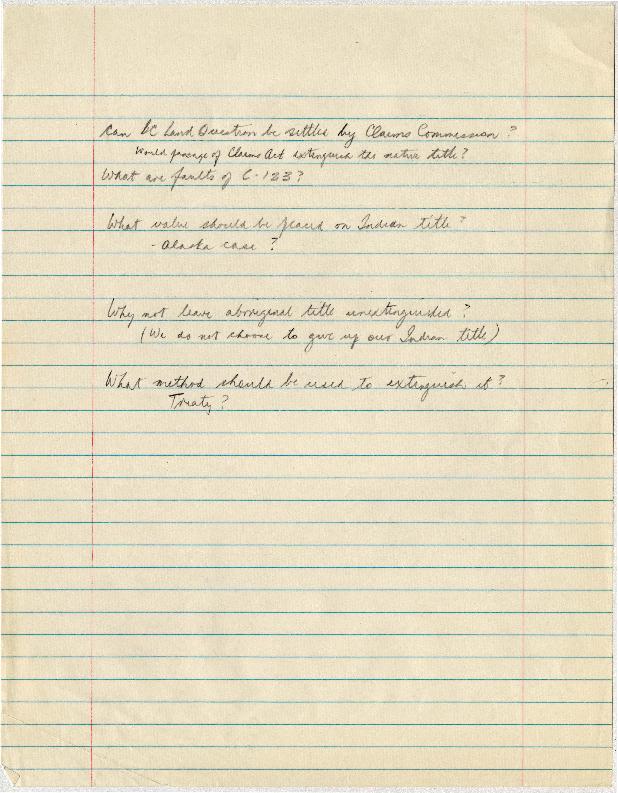 Can BC Land Question be settled by Claims Commission?
Would passage of Claims Act extinguish the native title?
What are faults of C-123?
What value should be placed on Indian title?
- Alaska case?
Why not leave aboriginal title unextinguished?
(We do not choose to give up our Indian title)
What method should be used to extinguish it?
Treaty?